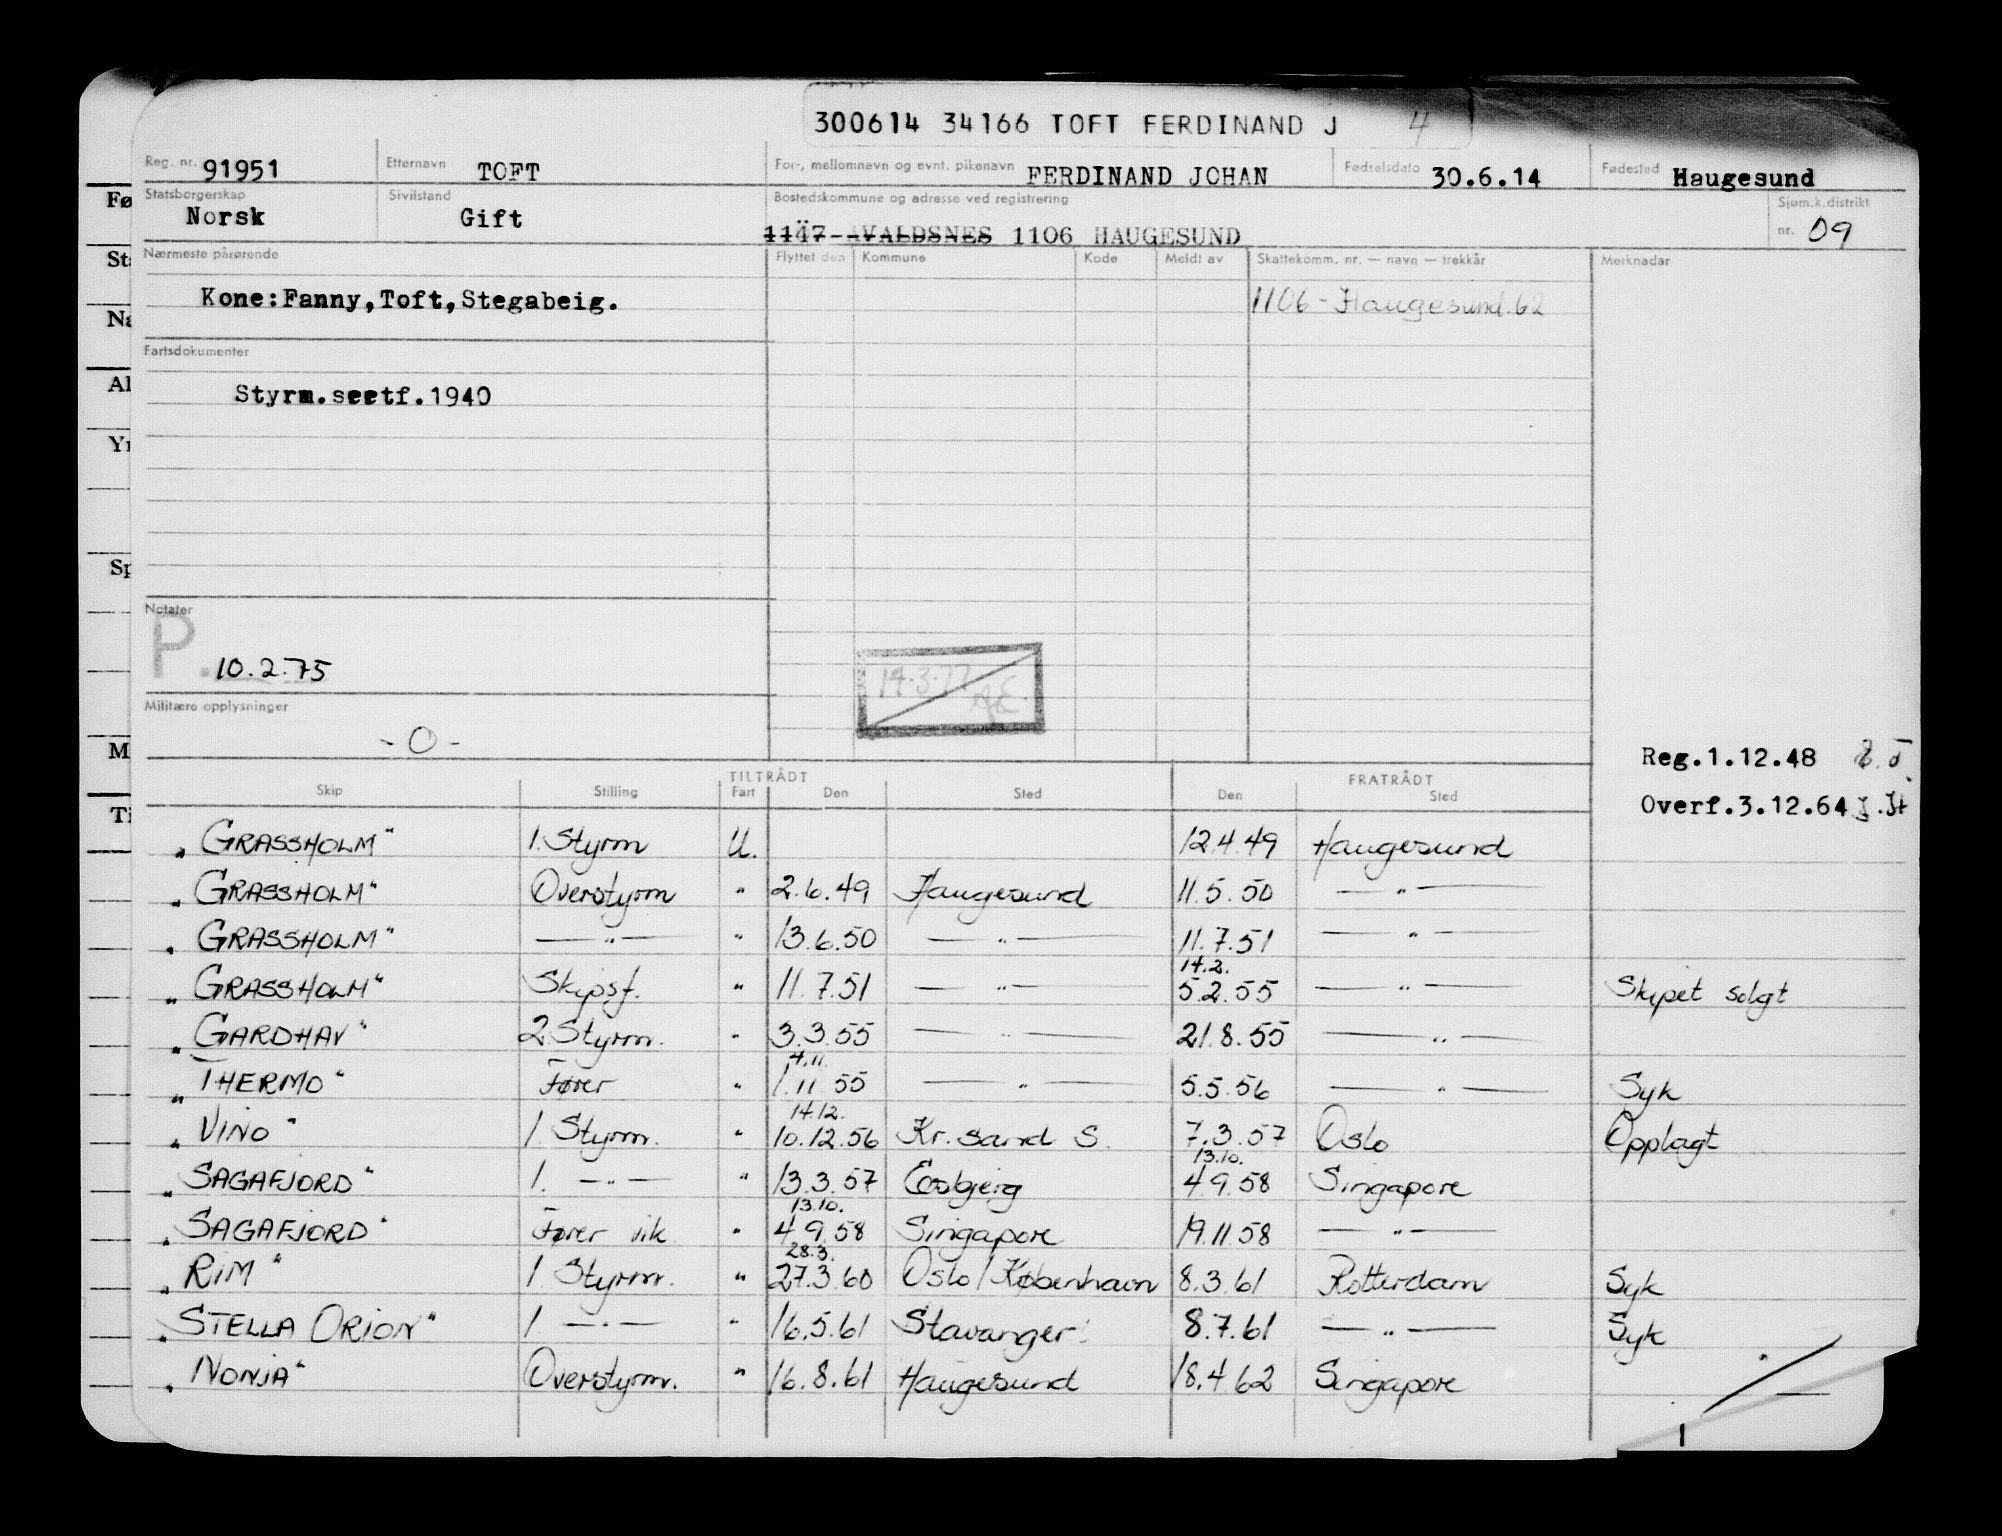 300614 34166 TOFT FERDINAND J 4
Reg. nr. 91951 Etternavn TOFT For-, mellomnavn og evnt. pikenavn FERDINAND JOHAN Fødselsdato 30.6.14 Fødested Haugesund
Statsborgerskap Norsk Sivilstand Gift Bostedskommune og adresse ved registrering 1147-AVALDSNES 1106 HAUGESUND Sjøm.k.distrikt nr. 09
Nærmeste pårørende Flyttet den Kommune Kode Meldt av Skattekomm. nr. — navn — trekkår Merknadar
Kone:Fanny,Toft,Stegabeig. 1106-Haugesund.62
Fartsdokumenter
Styrm.seetf.1940
Notater
P. 10.2.75
14.3.77 AE
Militære opplysninger
-0-
Reg.1.12.48
Overf.3.12.64 J.St
TILTRÅDT FRATRÅDT
Skip Stilling Fart Den Sted Den Sted
„GRASSHOLM“ 1.Styrm U. 12.4.49 Haugesund
„GRASSHOLM“ Overstyrm " 2.6.49 Haugesund 11.5.50 — " —
„GRASSHOLM“ — " — " 13.6.50 — " — 11.7.51 — " —
14.2.
„GRASSHOLM“ Skipsf. " 11.7.51 — " — 5.2.55 — " — Skipet solgt
„GARDHAV“ 2.Styrm. " 3.3.55 — " — 21.8.55 — " —
4.11.
„THERMO“ Fører " 1.11 55 — " — 5.5.56 — " — Syk
14.12.
„VINO“ 1.Styrm. " 10.12.56 Kr.sand S. 7.3.57 Oslo Opplagt
13.10.
„SAGAFJORD“ 1. — " — " 13.3.57 Esbjerg 4.9.58 Singapore
13.10.
„SAGAFJORD“ Fører vik " 4.9.58 Singapore 19.11.58 — " —
28.3.
„RIM“ 1.Styrm. " 27.3.60 Oslo/København 8.3.61 Rotterdam Syk
„STELLA ORION“ 1. — " — " 16.5.61 Stavanger 8.7.61 — " — Syk
„NONJA“ Overstyrm. " 16.8.61 Haugesund 18.4.62 Singapore
Fø
St
Na
Al
Yr
Sp
M
Ti
1